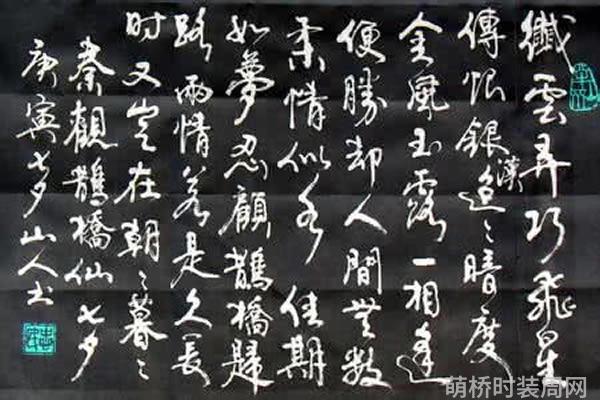 纖雲弄巧飛星
傳恨銀漢迢〻暗度
金風玉露一相逢
便勝却人間無数
柔情似水佳期
如夢忍顧鵲橋歸
路兩情若是久長
时又豈在朝〻暮〻
秦觀鵲橋仙七夕
庚寅七夕山人书
萌桥时装周网